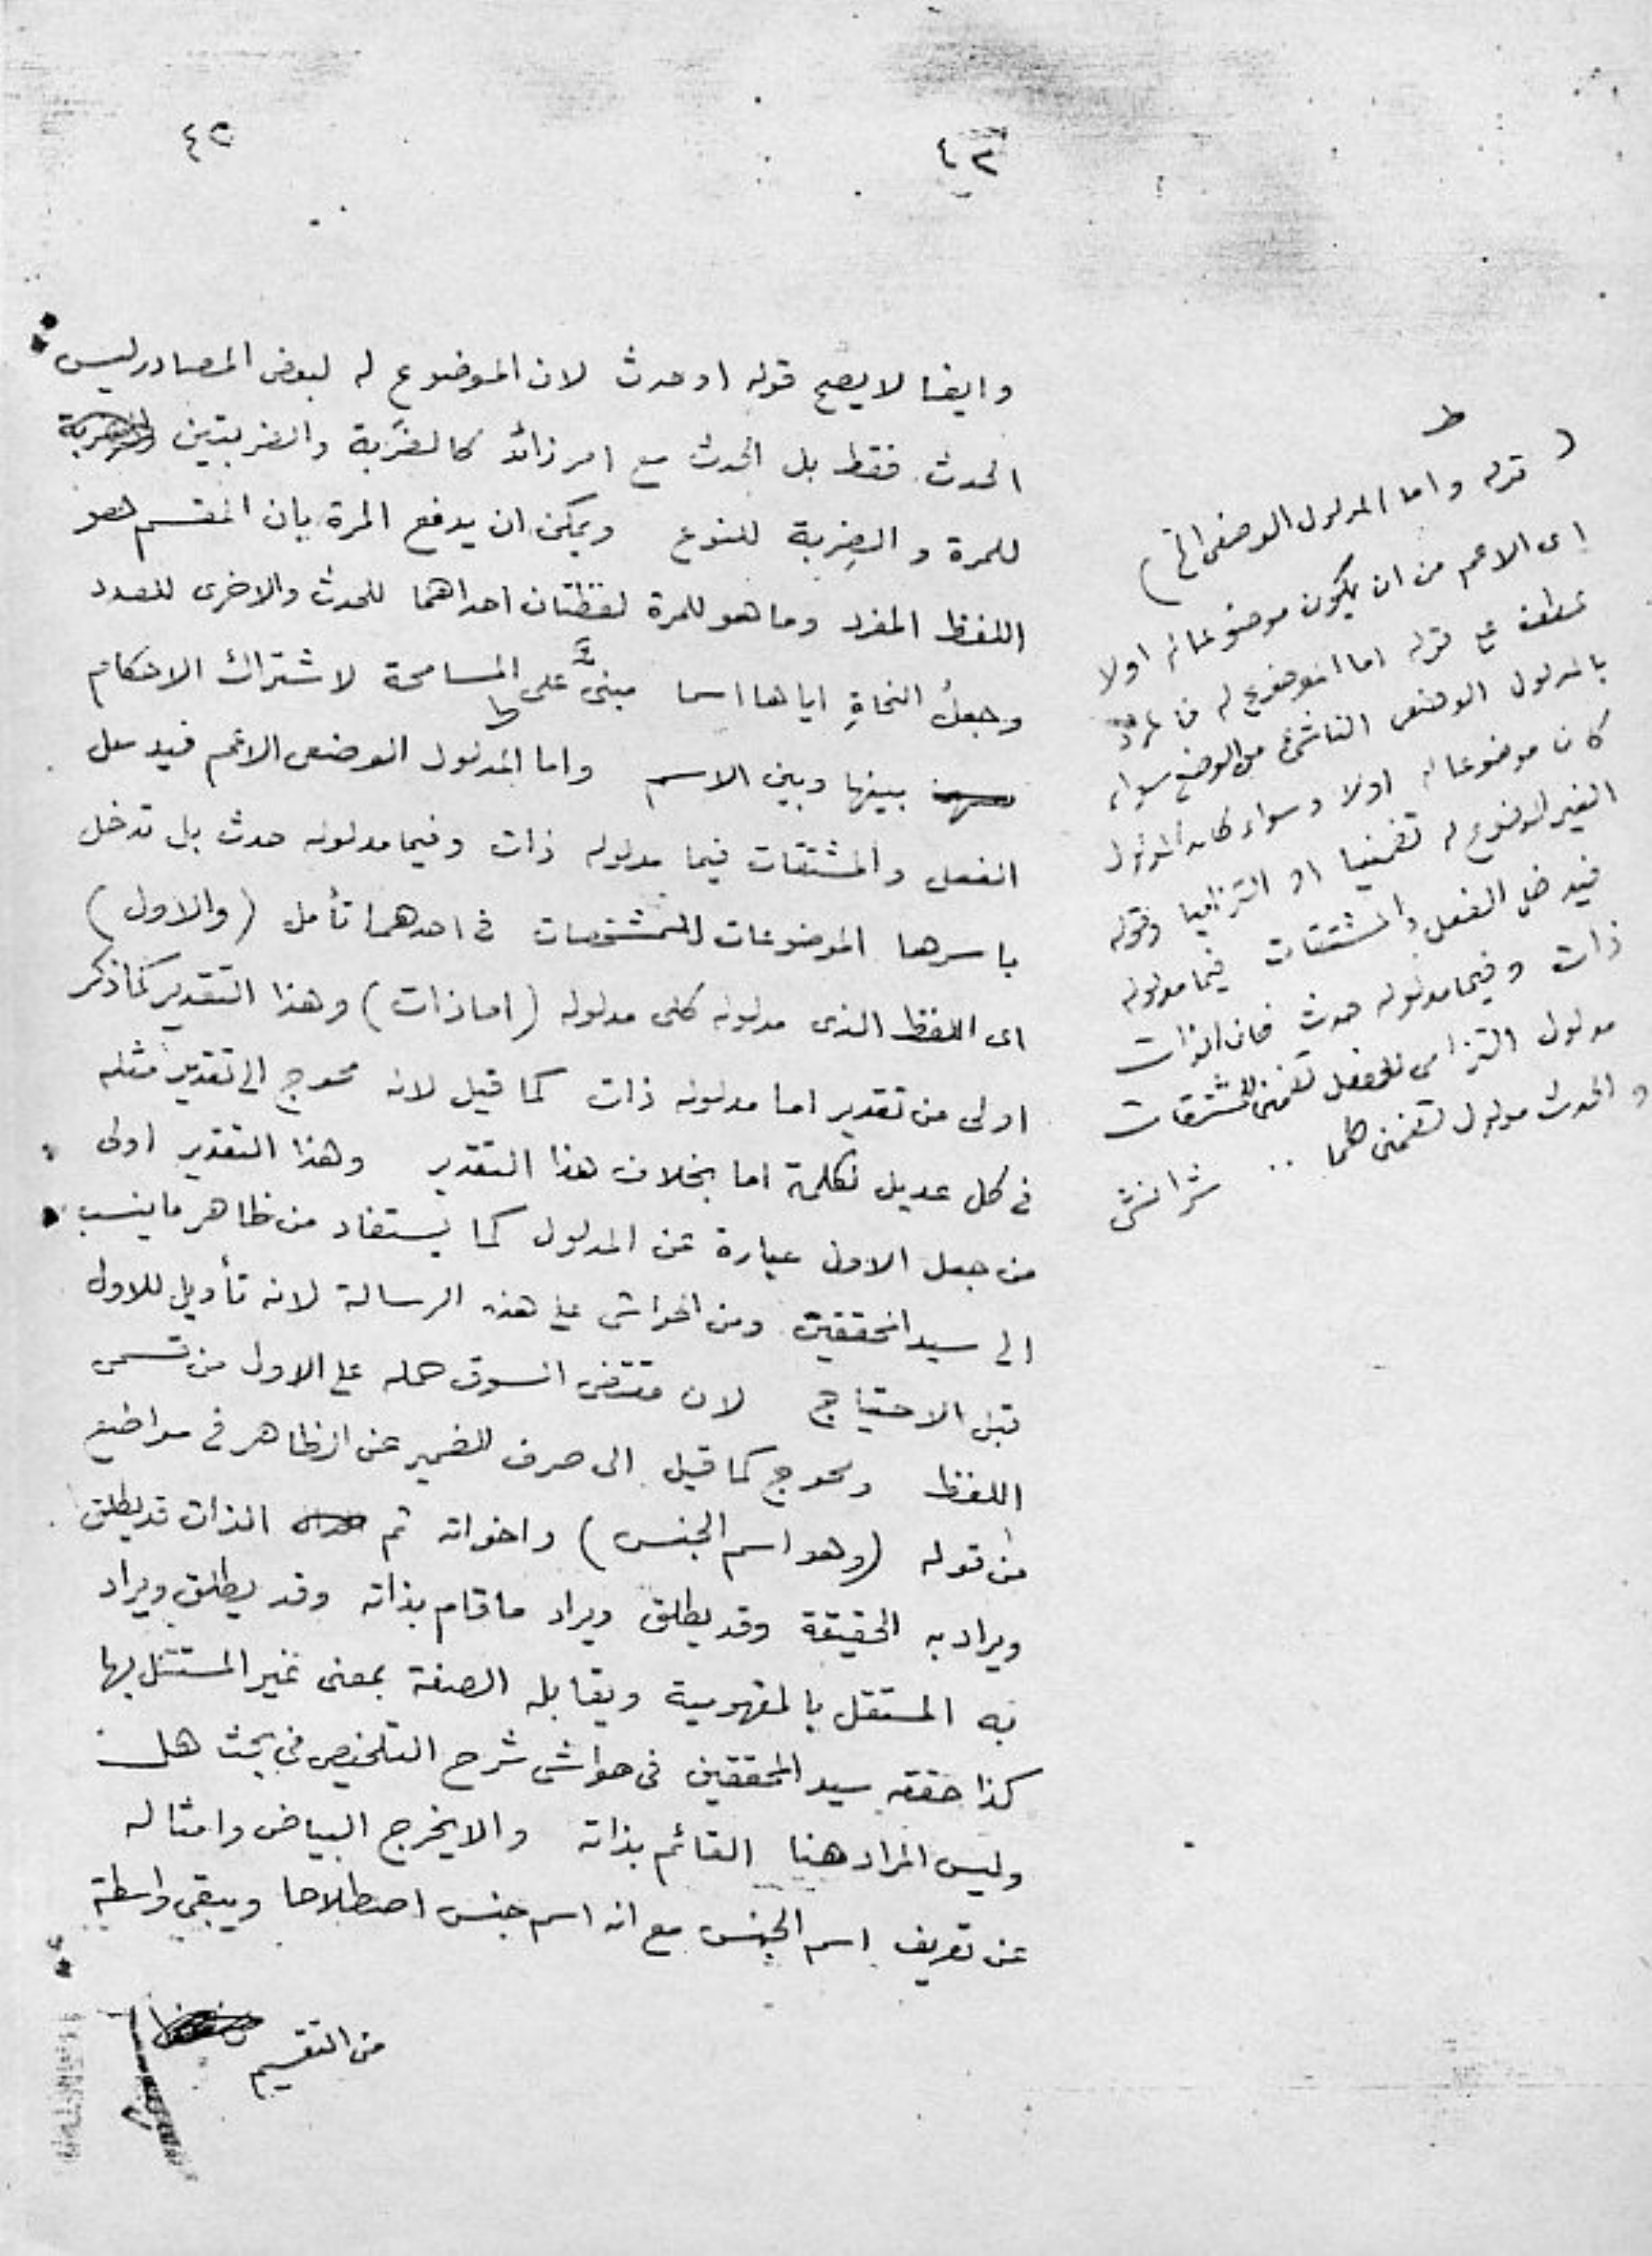 ٤٢
٤٥
وايضا لا يصح قوله او حدث لان الموضوع له لبعض المصادر ليس
الحدث فقط بل الحدث مع امر زائد كالضَّربة والضربتين
للمرة والضِربة للنوع ويمكن ان يدفع المرة بان المقسم هو
اللفظ المفرد وما هو للمرة لفظتان احداهما للحدث والاخرى للعدد
وجعلُ النحاةِ اياها اسما مبنىٌّ على المسامحة لاشتراك الاحكام
بينها وبين الاسم واما المدلول الوضعى الاعم فيدخل
الفعل والمشتقات فيما مدلوله ذات وفيما مدلوله حدث بل تدخل
باسرها الموضوعات للمشخصات فى احدهما تأمل (والاول)
اى اللفظ الذى مدلوله كلى مدلوله (اما ذات) وهذا التقدير كما ذكر
اولى من تقدير اما مدلوله ذات كما قيل لانه محوج الى تقدير مثله
فى كل عديل لكلمة اما بخلاف هذا التقدير وهذا التقدير اولى
من جعل الاول عبارة عن المدلول كما يستفاد من ظاهر ما ينسب
الى سيد المحققين ومن الحواشى على هذه الرسالة لانه تأويل للاول
قبل الاحتياج لان مقتضى السوق حمله على الاول من قسمى
اللفظ ومحوج كما قيل الى صرف الضمير عن الظاهر فى مواضع
من قوله (وهو اسم الجنس) واخواته ثم الذات قد يطلق
ويراد به الحقيقة وقد يطلق ويراد ما قام بذاته وقد يطلق ويراد
به المستقل بالمفهومية ويقابله الصفة بمعنى غير المستقل بها
كذا حققه سيد المحققين فى حواشى شرح التلخيص فى بحث هل
وليس المراد هنا القائم بذاته والا يخرج البياض وامثاله
عن تعريف اسم الجنس مع انه اسم جنس اصطلاحا ويبقى واسطة
من التقسيم
ط
(قوله واما المدلول الوضعى الخ)
اى الاعم من ان يكون موضوعا له اولا
عطف على قوله اما الموضوع له
بالمدلول الوضعى الناشئ من الوضع سواء
كان موضوعا له اولا وسواء كان المدلول
الغير الموضوع له تضمنيا او التزاميا وقوله
فيدخل الفعل والمشتقات فيما مدلوله
ذات وفيما مدلوله حدث فان الذات
مدلول التزامى للفعل تضمنى للمشتقات
والحدث مدلول تضمنى لهما